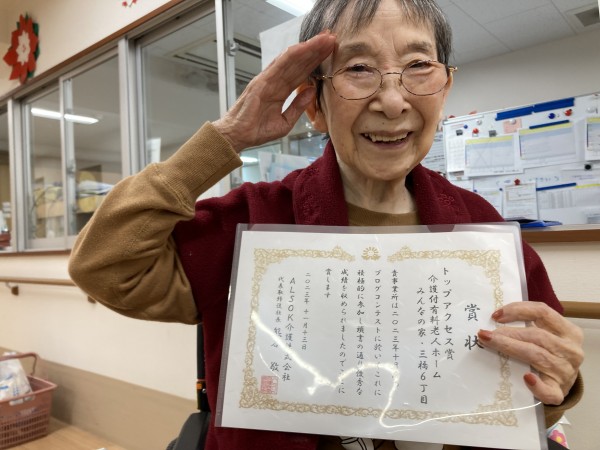 賞状
トップアクセス賞
介護付有料老人ホーム
みんなの家・三橋6丁目
貴事業所は二〇二三年十月
ブログコンテストに於いてこれに
積極的に参加し標書の通り優秀な
成績を収められましたのでここに
賞します
二〇二三年 十一月十三日
ALSOK介護株式会社
代表取締役社長